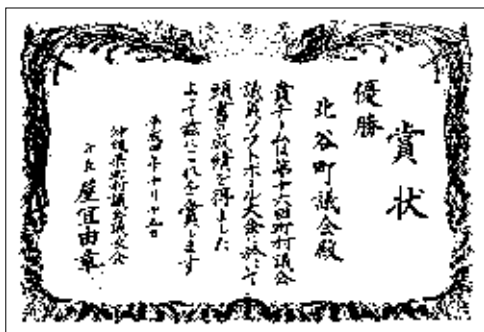 賞状
優勝
北谷町議会殿
貴チームは第十六回町村議会
議員ソフトボール大会に於いて
頭書の成績を得ました
よって茲にこれを賞します
平成四年十月十五日
沖縄県町村議会議長会
会長 屋宜由章